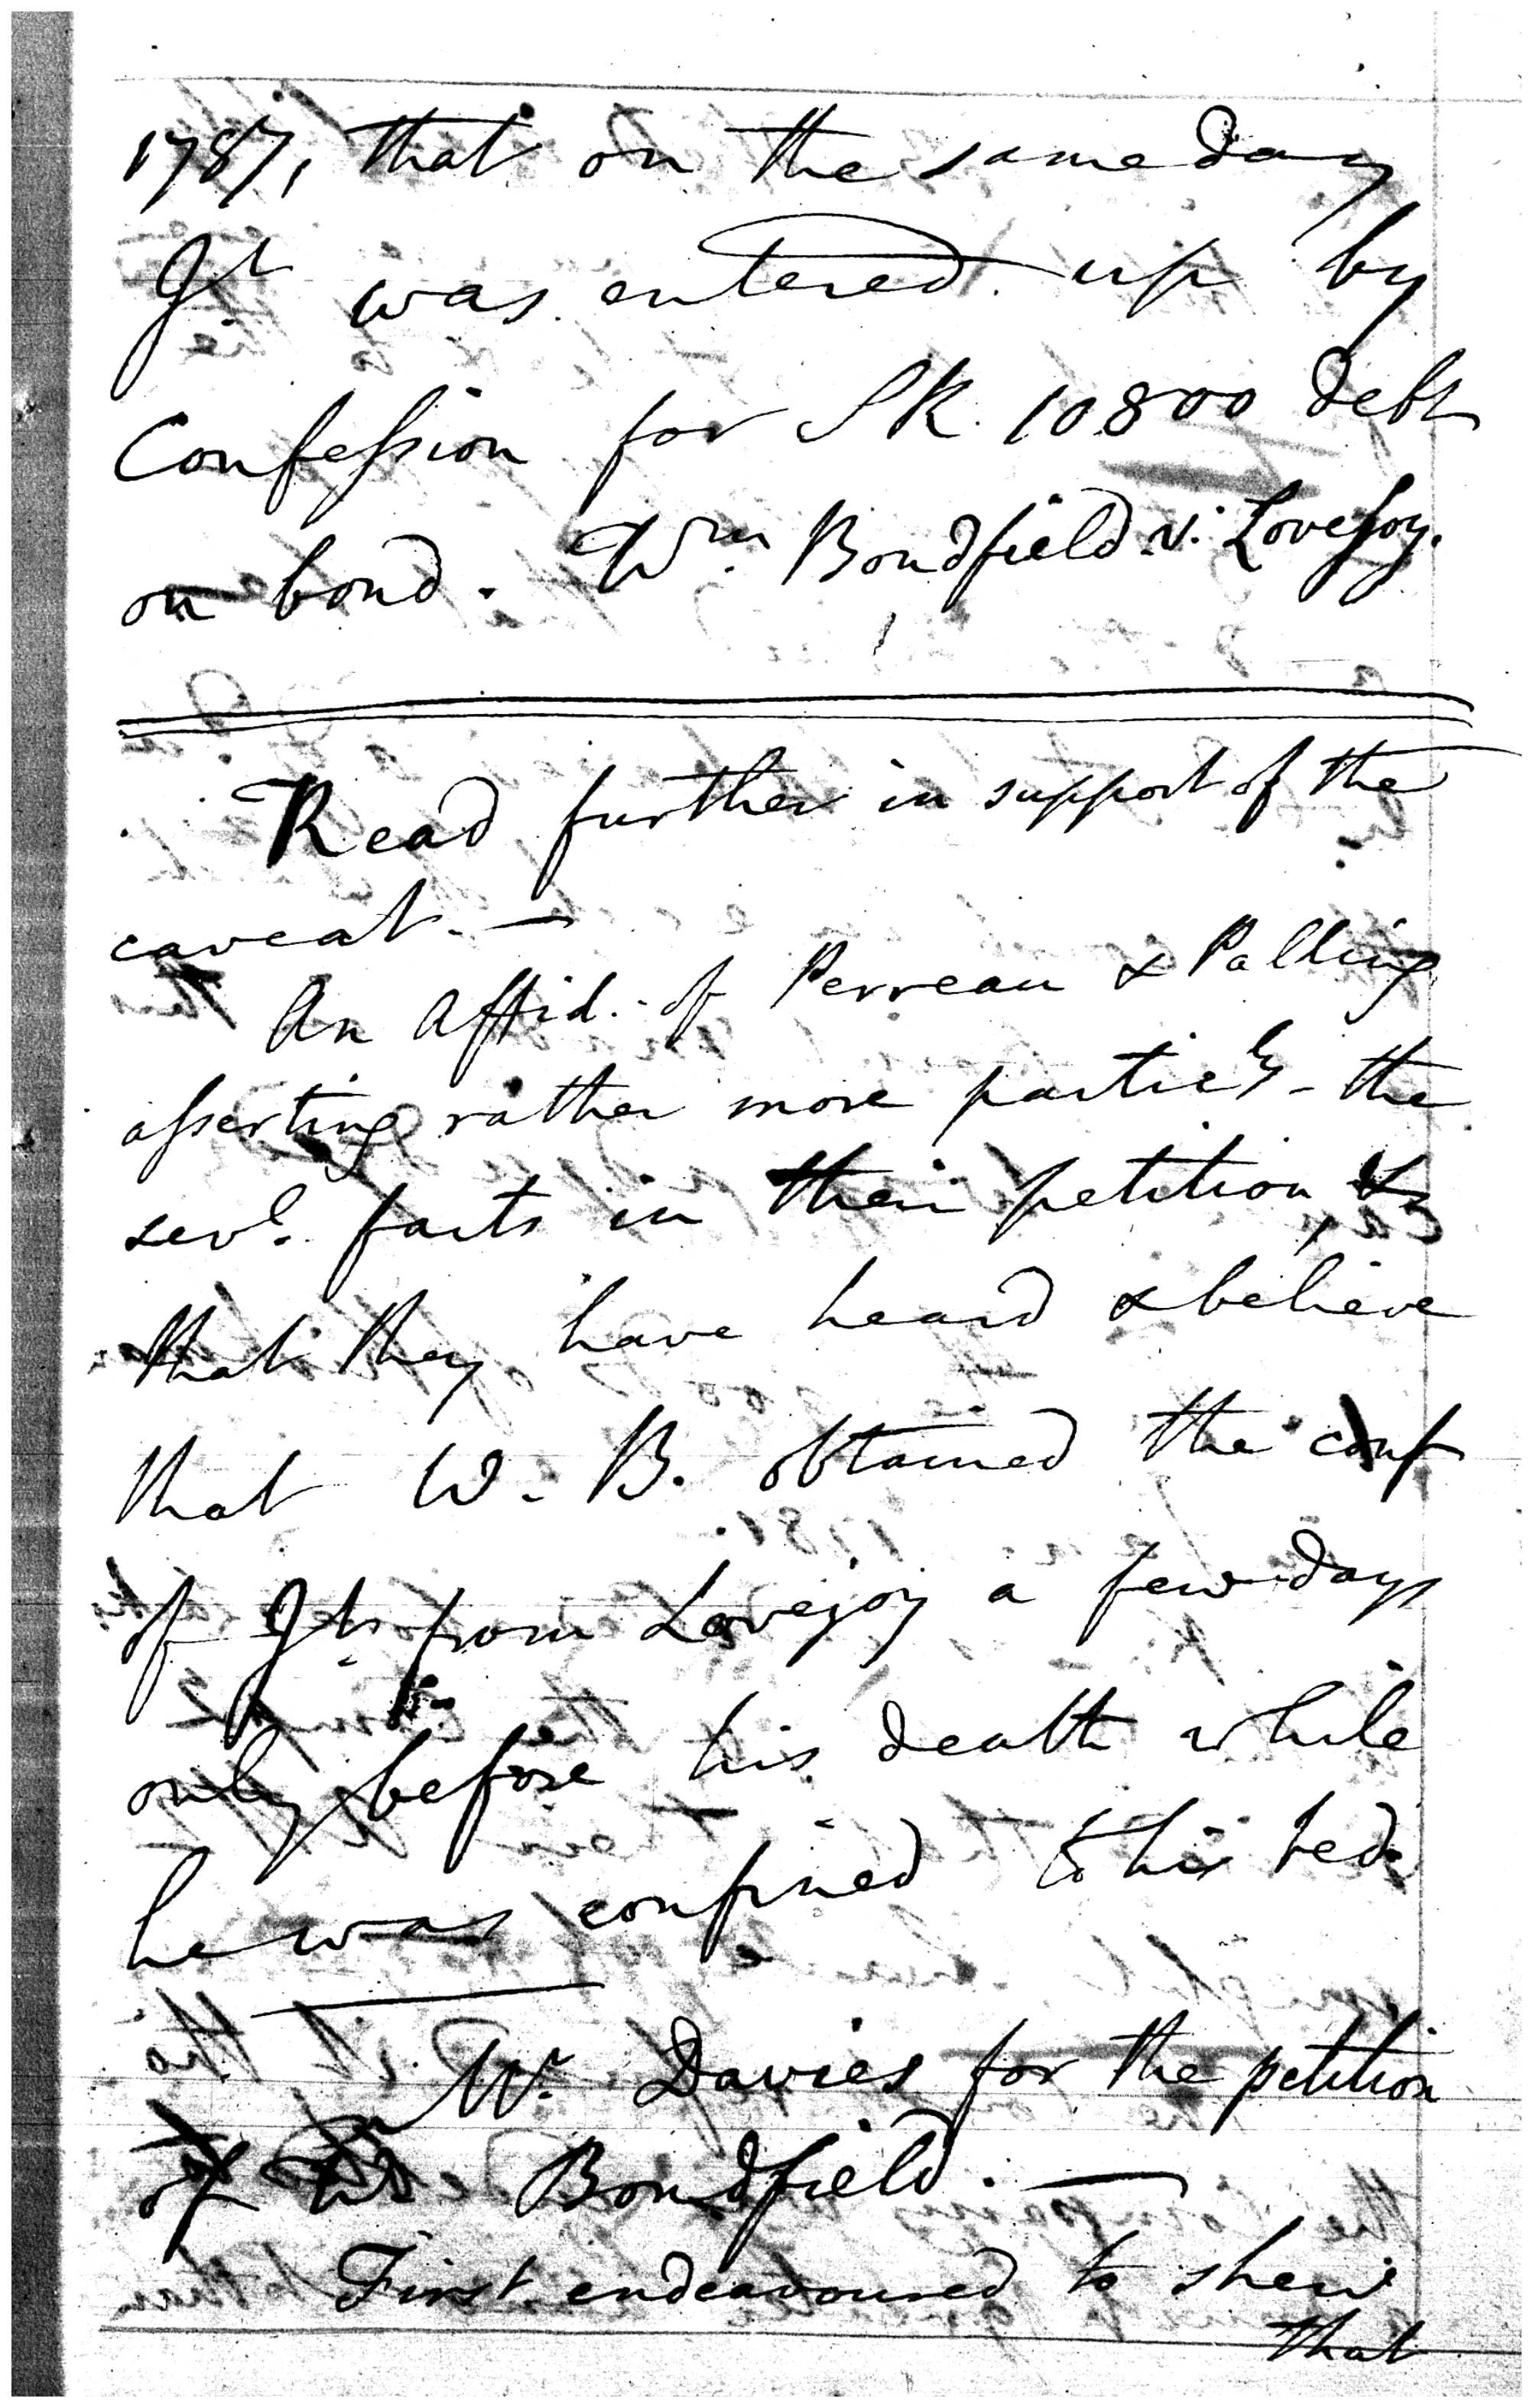 1787, that on the same day
Jt was entered up by
Confession for SR. 10800 debt
on bond. Wm Bondfield v. Lovejoy.
Read further in support of the
caveat. —
An Affid. of Perreau & Palling
asserting rather more particly - the
sevl. facts in their petition, &
that they have heard & believe
that W. B. obtained the conf
of Jt. from Lovejoy a few days
only before his death while
he was confined to his bed.
Mr Davies for the petition
of Bondfield. —
First endeavoured to shew
that